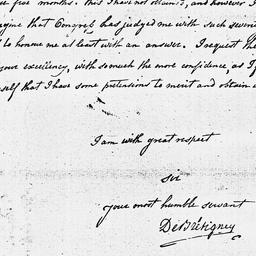 five months. this I have not obtained, and however I
imagine that Congress has judged me with such severi
to honour me at least with an answer. I request the
your excellency, with so much the more confidence, as I f
self that I have some pretensions to merit and obtain
I am with great respect
sir
your most humble servant
De Brétigney